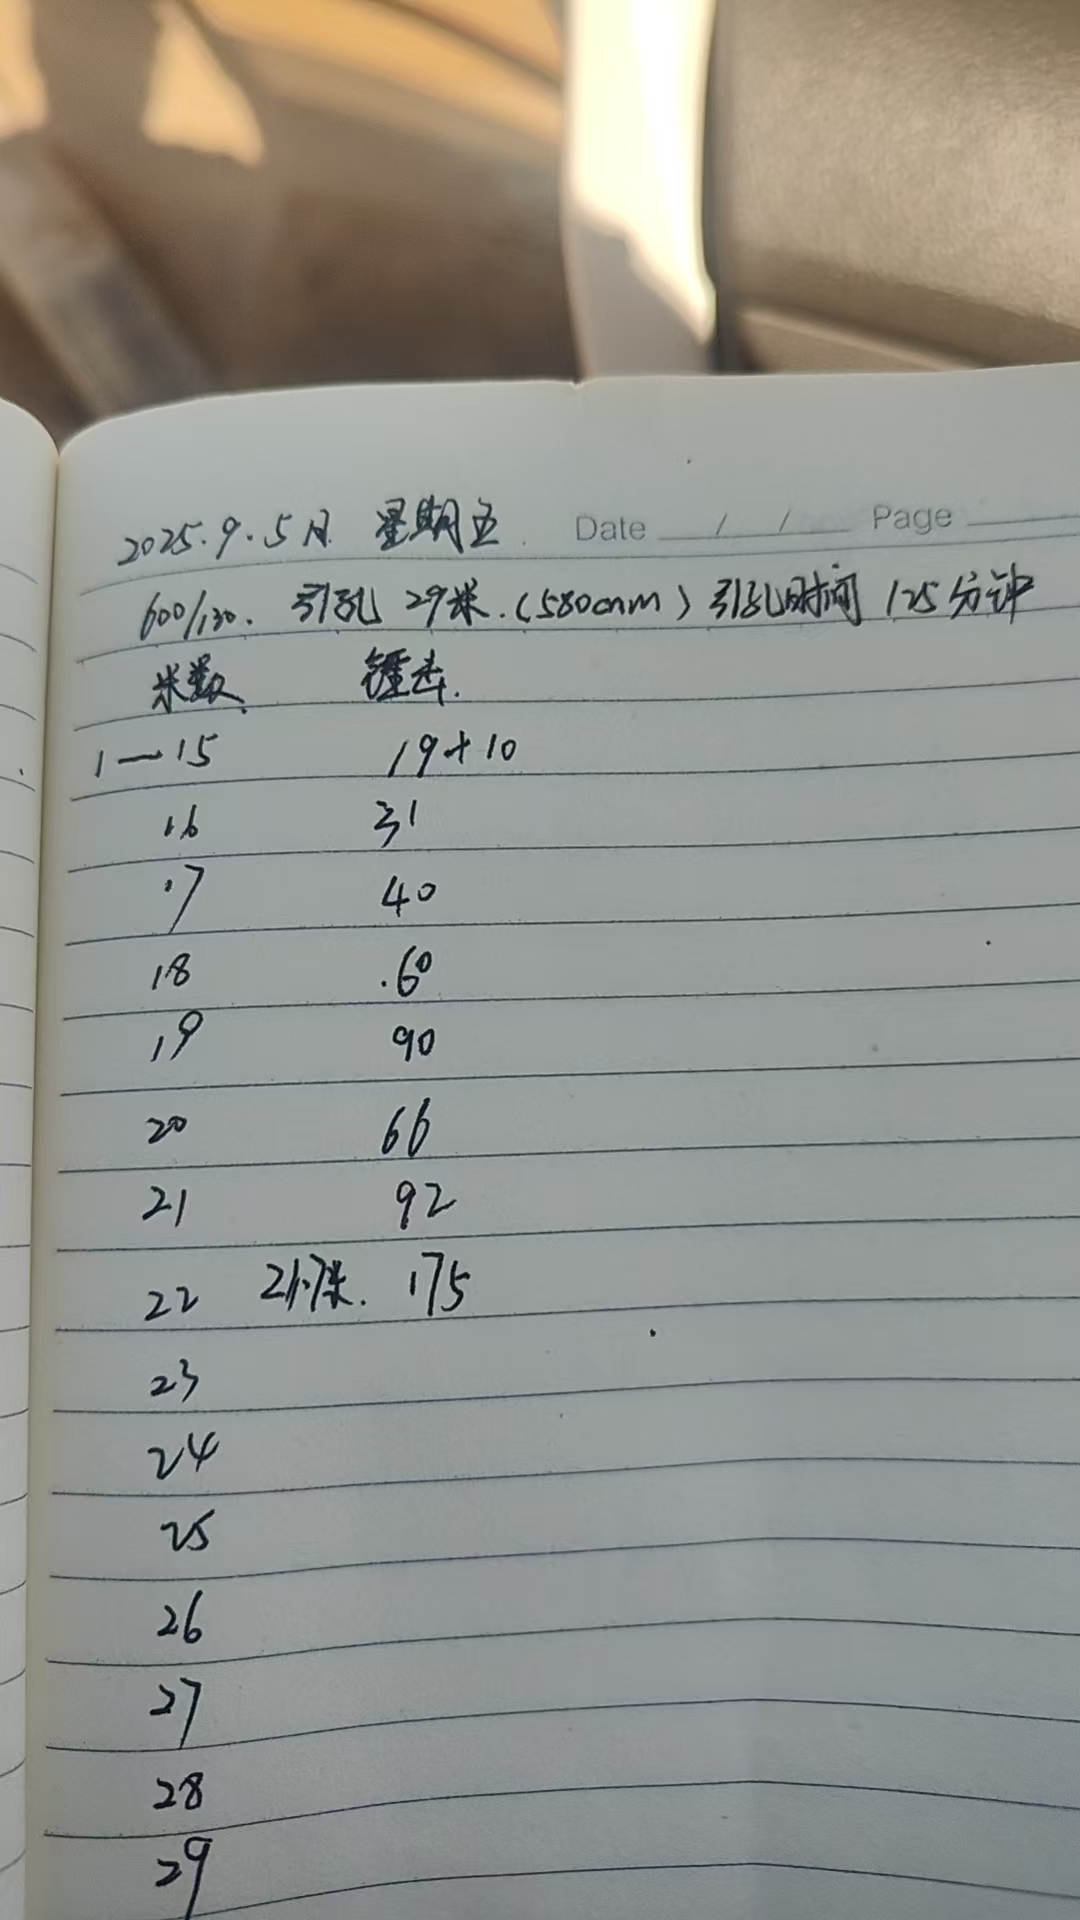 2025.9.5日 星期五. Date / / Page
600/130. 引孔 29米.(580cmm) 引孔时间 125分钟
米数 锤击.
1—15 19+10
16 31
17 40
18 60
19 90
20 66
21 92
22 21.7米. 175
23
24
25
26
27
28
29